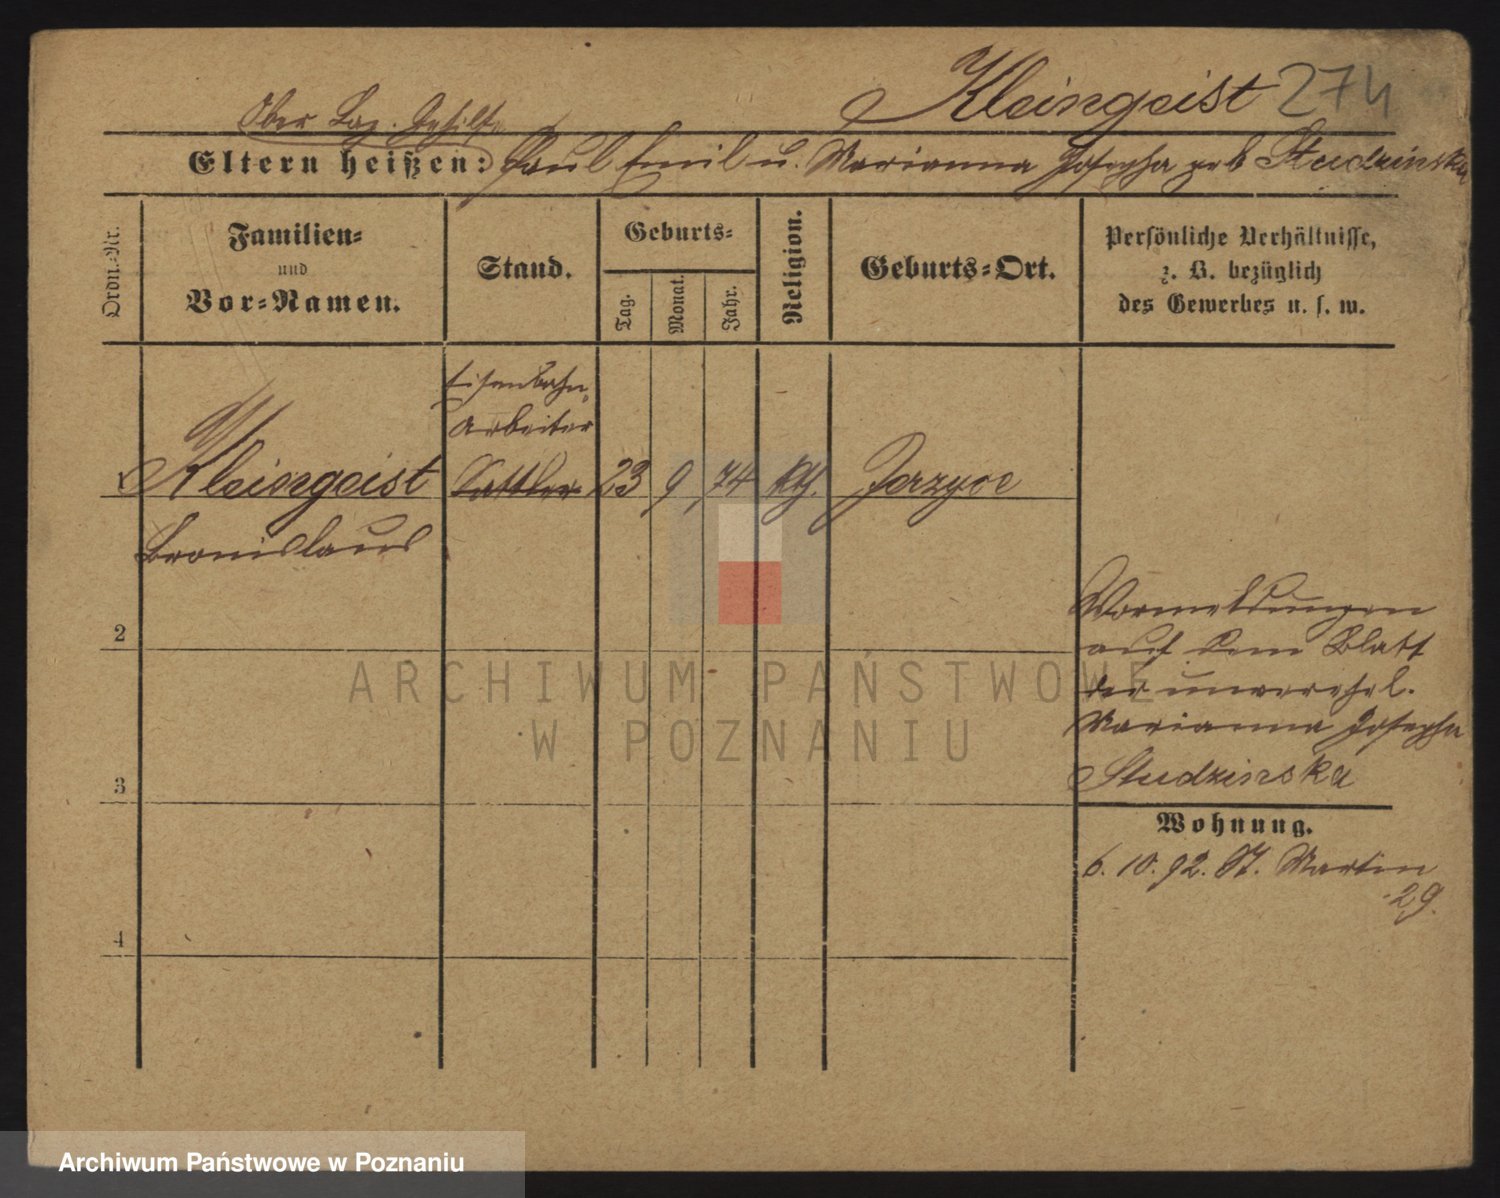 Kleingeist 274
Ober Laz. Gehilfe
Eltern heißen: Paul Emil u. Marianna Josepha geb Studzinska
Ordn.-Nr.
Familien-
und
Vor-Namen.
Stand.
Geburts-
Tag.
Monat.
Jahr.
Religion.
Geburts-Ort.
Persönliche Verhältnisse,
z. B. bezüglich
des Gewerbes u. s. w.
Eisenbahn-
arbeiter
1 Kleingeist Sattler 23 9 74 kth. Jerzyce
Bronislaus
2
3
4
Vormeldungen
auf dem Blatt
der unverehel.
Marianna Josepha
Studzinska
Wohnung.
6. 10. 92. St. Martin
29.
ARCHIWUM PAŃSTWOWE
W POZNANIU
Archiwum Państwowe w Poznaniu